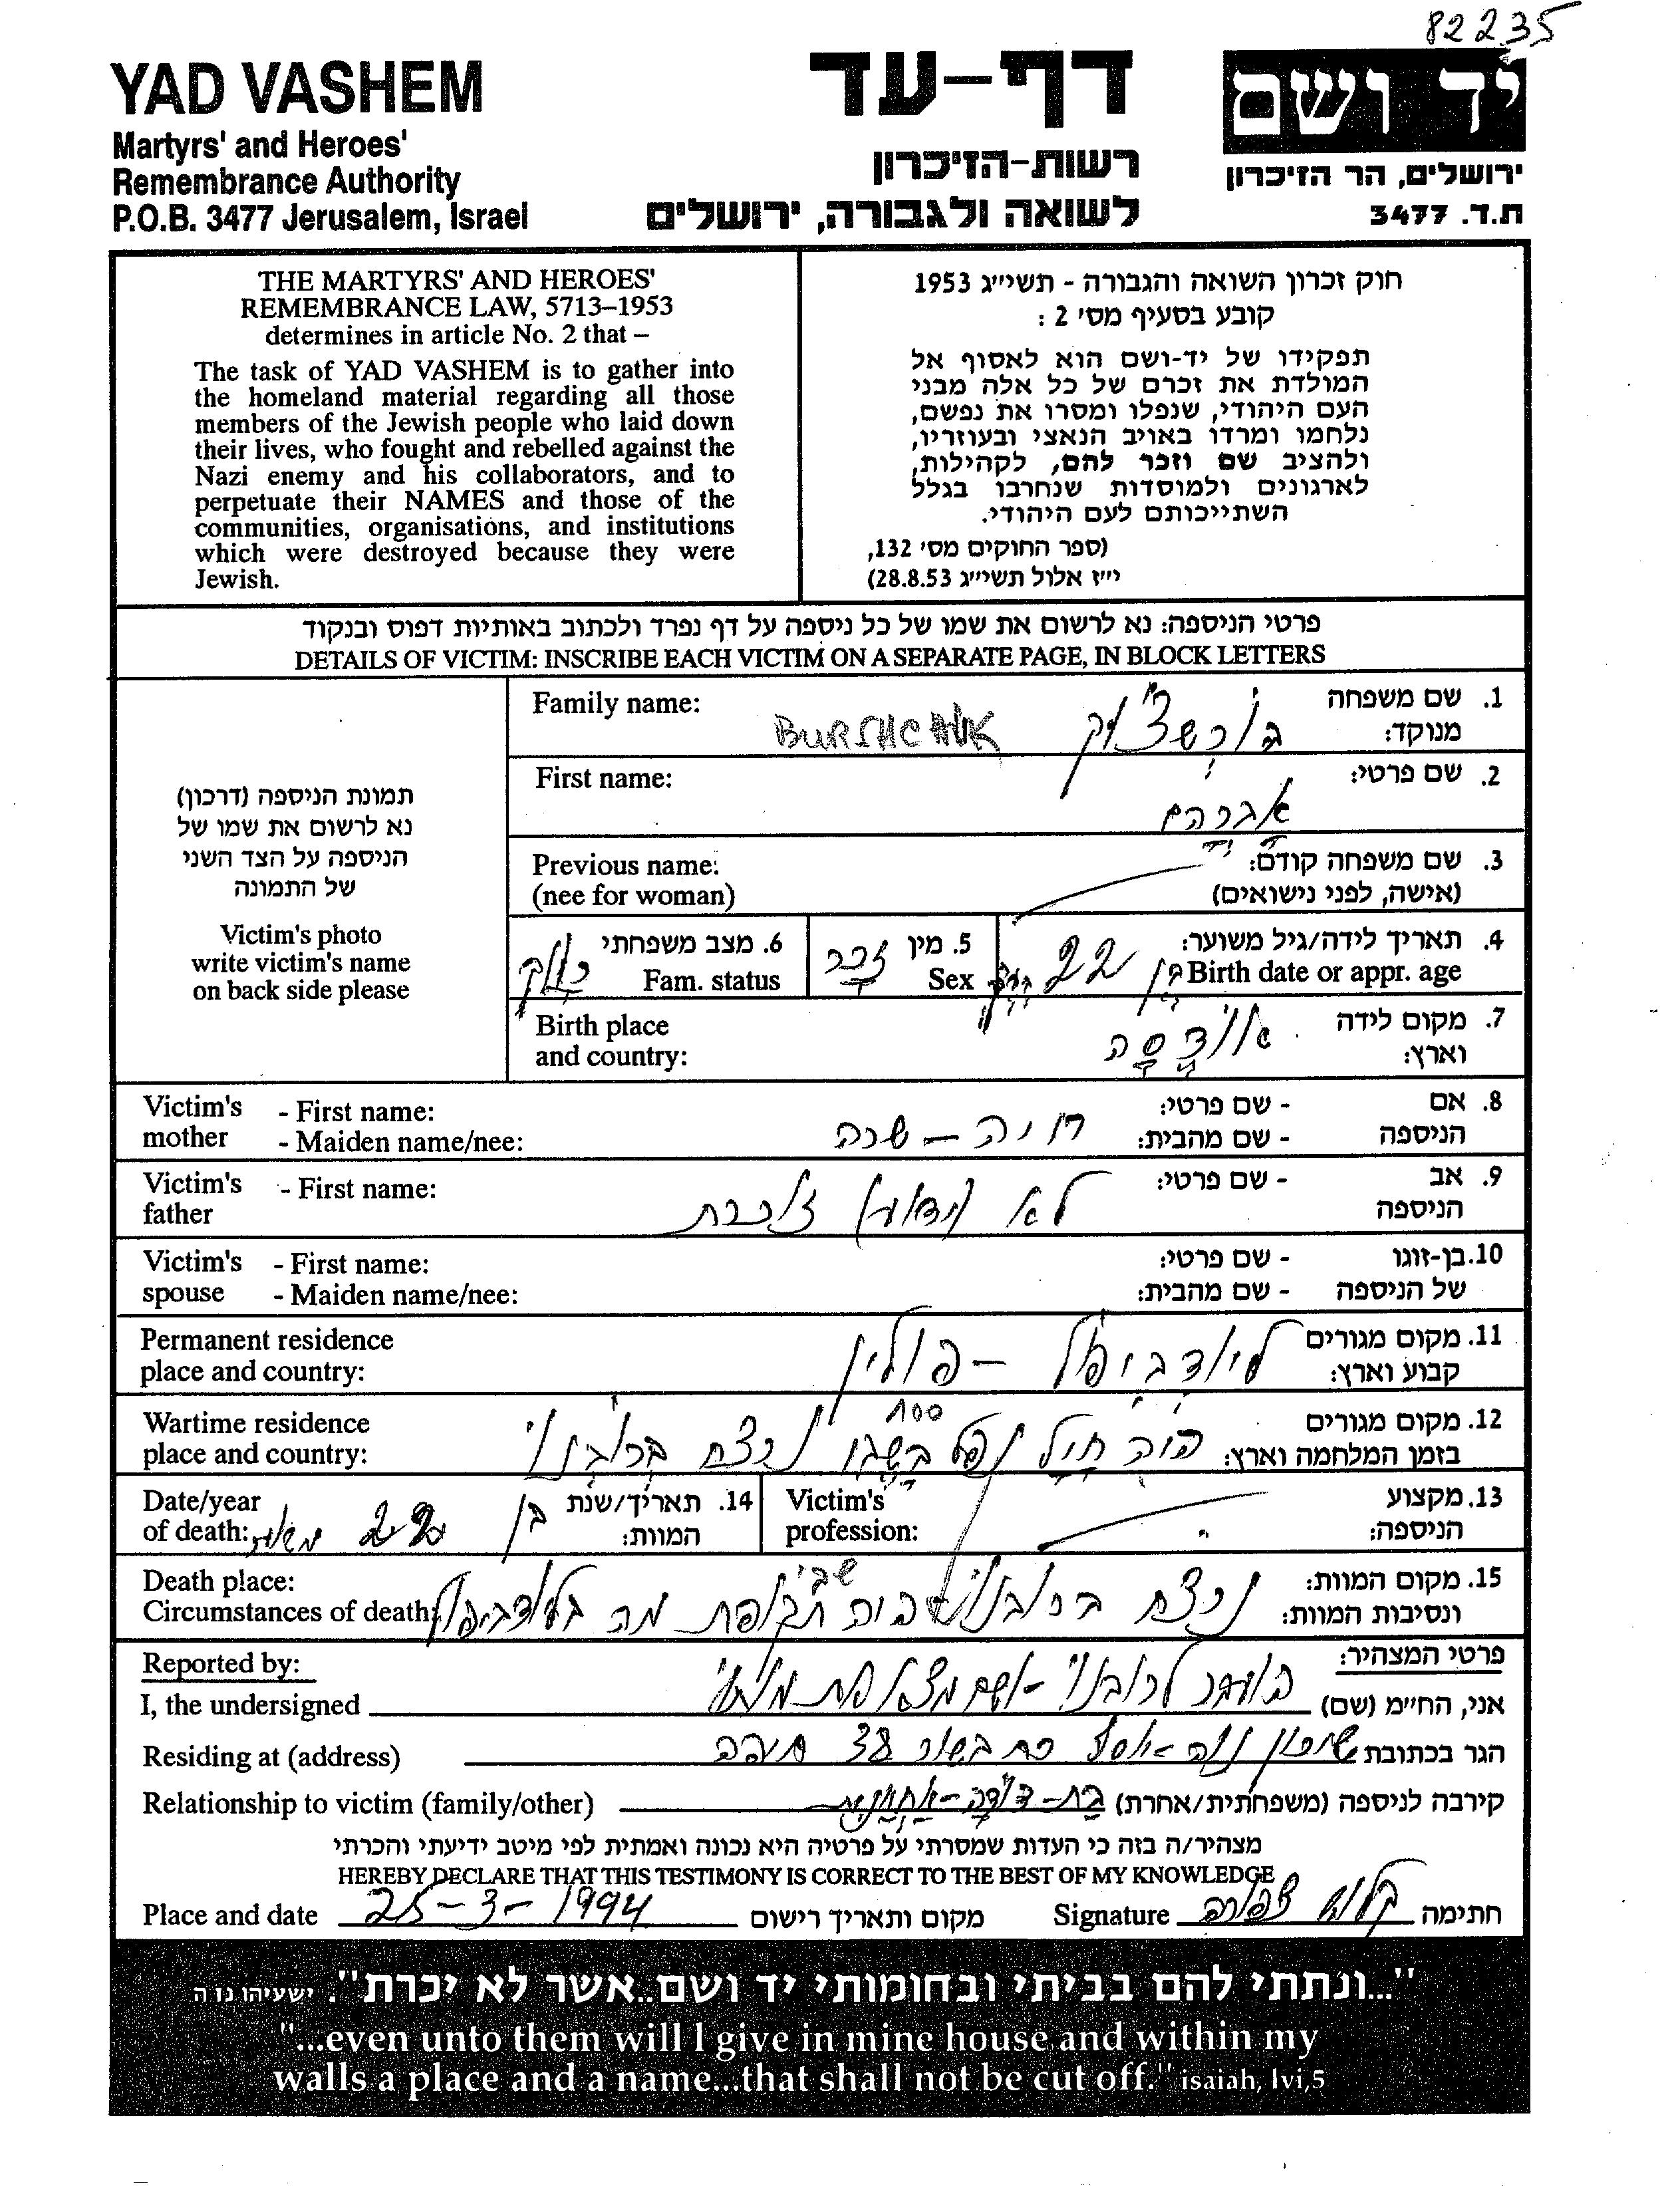 82235
YAD VASHEM
Martyrs' and Heroes'
Remembrance Authority
P.O.B. 3477 Jerusalem, Israel
דף-עד
רשות-הזיכרון
לשואה ולגבורה, ירושלים
יד ושם
ירושלים, הר הזיכרון
ת.ד. 3477
THE MARTYRS' AND HEROES'
REMEMBRANCE LAW, 5713–1953
determines in article No. 2 that –
The task of YAD VASHEM is to gather into
the homeland material regarding all those
members of the Jewish people who laid down
their lives, who fought and rebelled against the
Nazi enemy and his collaborators, and to
perpetuate their NAMES and those of the
communities, organisations, and institutions
which were destroyed because they were
Jewish.
חוק זכרון השואה והגבורה - תשי״ג 1953
קובע בסעיף מס׳ 2 :
תפקידו של יד-ושם הוא לאסוף אל
המולדת את זכרם של כל אלה מבני
העם היהודי, שנפלו ומסרו את נפשם,
נלחמו ומרדו באויב הנאצי ובעוזריו,
ולהציב שם וזכר להם, לקהילות,
לארגונים ולמוסדות שנחרבו בגלל
השתייכותם לעם היהודי.
(ספר החוקים מס׳ 132,
י״ז אלול תשי״ג 28.8.53)
פרטי הניספה: נא לרשום את שמו של כל ניספה על דף נפרד ולכתוב באותיות דפוס ובנקוד
DETAILS OF VICTIM: INSCRIBE EACH VICTIM ON A SEPARATE PAGE, IN BLOCK LETTERS
תמונת הניספה (דרכון)
נא לרשום את שמו של
הניספה על הצד השני
של התמונה
Victim's photo
write victim's name
on back side please
1. שם משפחה
מנוקד: בורשצ'וק BURSHCHUK Family name:
2. שם פרטי: אברהם First name:
3. שם משפחה קודם: Previous name:
(אישה, לפני נישואים) (nee for woman)
4. תאריך לידה/גיל משוער: 5. מין 6. מצב משפחתי
Birth date or appr. age בן 22 Sex זכר Fam. status רווק
7. מקום לידה Birth place
וארץ: אודסה and country:
8. אם - שם פרטי: Victim's - First name:
הניספה - שם מהבית: חיה - שרה mother - Maiden name/nee:
9. אב - שם פרטי: Victim's - First name:
הניספה לא זוכרת father
10. בן-זוגו - שם פרטי: Victim's - First name:
של הניספה - שם מהבית: spouse - Maiden name/nee:
11. מקום מגורים Permanent residence
קבוע וארץ: לודביפול - פולין place and country:
12. מקום מגורים Wartime residence
בזמן המלחמה וארץ: היה חייל נפל בשבי נרצח ברובנו place and country:
13. מקצוע Victim's
הניספה: profession:
14. תאריך/שנת Date/year
המוות: בן 22 of death:
15. מקום המוות: Death place:
ונסיבות המוות: נרצח ברובנו שהיה תקופת מה בלודביפול Circumstances of death:
פרטי המצהיר: Reported by:
אני, הח״מ (שם) הועבר לרובנו I, the undersigned
הגר בכתובת Residing at (address)
קירבה לניספה (משפחתית/אחרת) בת-דודה- Relationship to victim (family/other)
מצהיר/ה בזה כי העדות שמסרתי על פרטיה היא נכונה ואמתית לפי מיטב ידיעתי והכרתי
HEREBY DECLARE THAT THIS TESTIMONY IS CORRECT TO THE BEST OF MY KNOWLEDGE
Place and date 25-3-1994 מקום ותאריך רישום Signature צפורה חתימה
"...ונתתי להם בביתי ובחומותי יד ושם..אשר לא יכרת". ישעיהו נו ה
"...even unto them will I give in mine house and within my
walls a place and a name...that shall not be cut off." isaiah, lvi,5